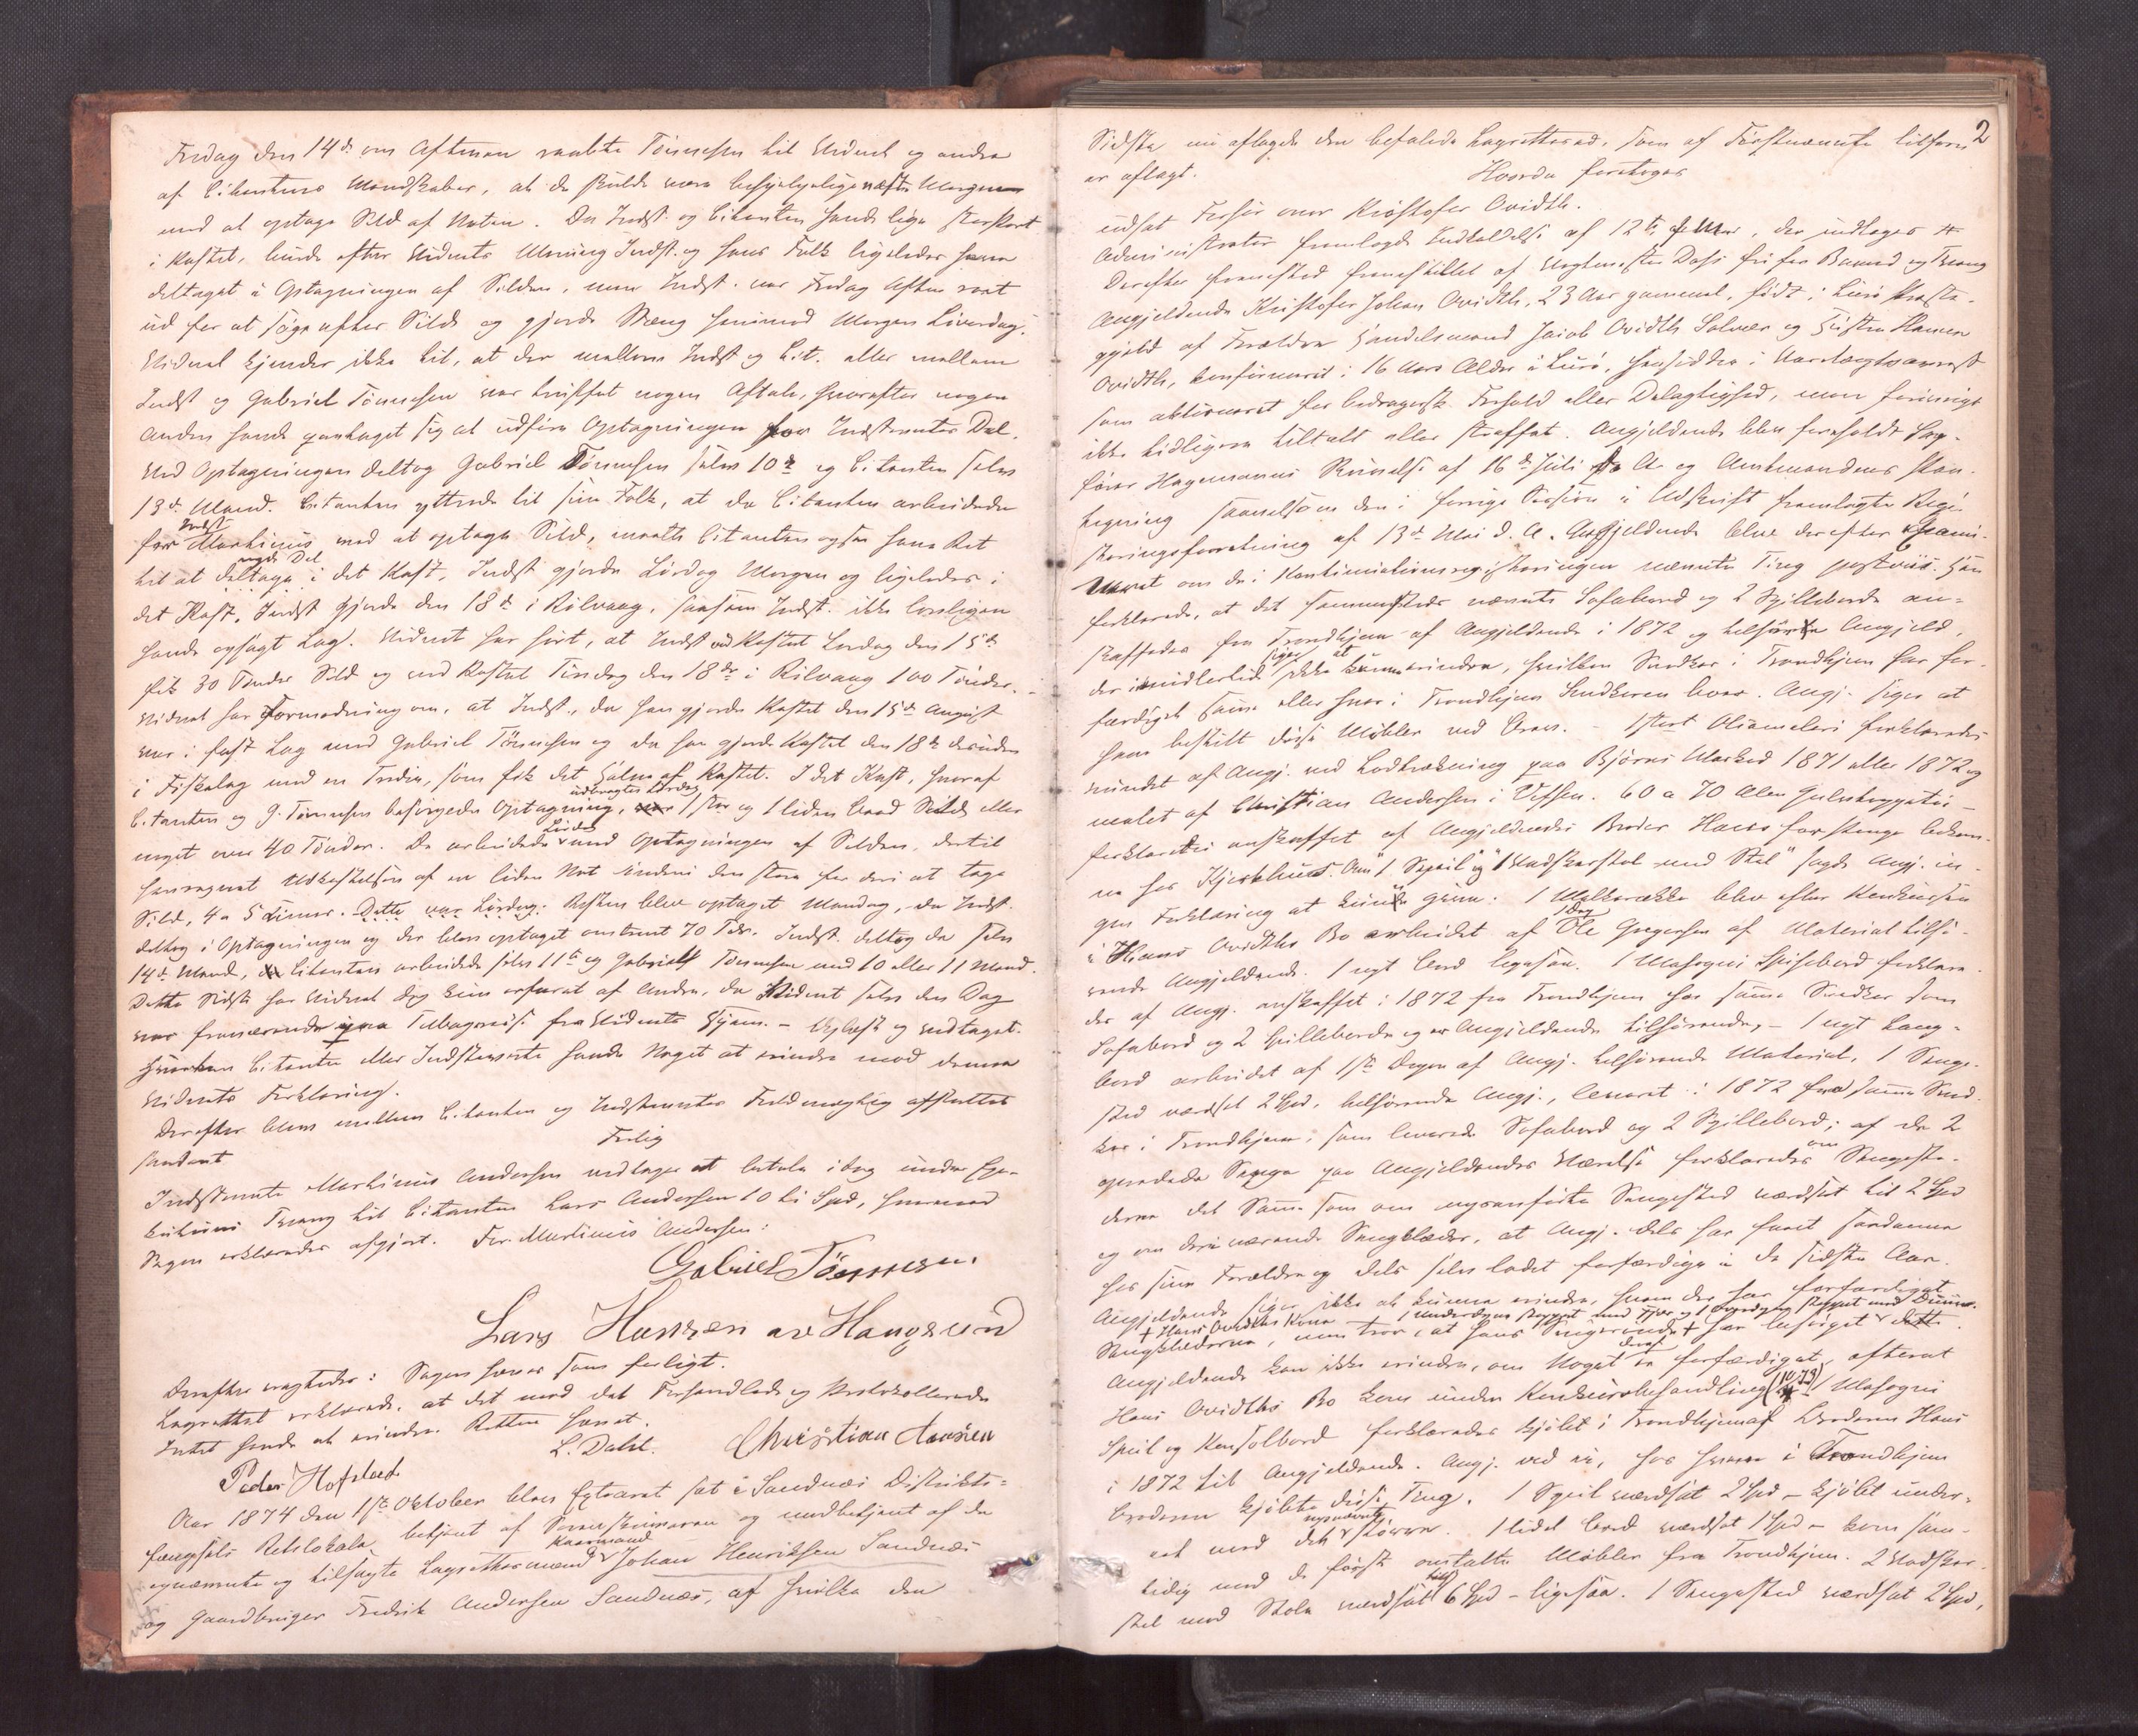 Fredag den 14de om Aftenen raabte Tønnesen til Vidnet og andre
af Citantens Mandskaber, at de skulde være behjelpelige næste Morgen
med at optage Sild af Noten. Da Indst. og Citanten havde lige Part
i Kastet, burde efter Vidnets Mening Indst. og hans Folk ligeledes have
deltaget i Optagningen af Silden, men Indst. var Fredag Aften roet
ud for at søge efter Sild og gjorde Steng henimod Morgen Løverdag.
Vidnet kjender ikke til, at der mellem Indst og Cit. eller mellem
Indst og Gabriel Tønnesen var truffet nogen Aftale, hvorefter nogen
Anden havde paataget sig at udføre Optagningen for Indstevntes Del.
Ved Optagningen deltog Gabriel Tønnesen selv 10de og Citanten selv
13de Mand. Citanten yttrede til sine Folk, at da Citanten arbeidede
Indst
for Martinus med at optage Sild, maatte Citanten ogsaa have Ret
nogen Del
til at deltage i det Kast, Indst gjorde Lørdag Morgen og ligeledes i
det Kast, Indst gjorde den 18de i Rölvaag, saasom Indst. ikke lovligen
havde opsagt Lag. Vidnet har hørt, at Indst ved Kastet Lørdag den 15de
fik 30 Tønder Sild og ved Kastet Tirsdag den 18de i Rilvaag 100 Tønder.
Vidnet har Formodning om, at Indst., da han gjorde Kastet den 15de August
var i fast Lag med Gabriel Tönnesen og da han gjorde Kastet den 18de desuden
i Fiskelag med en Tredie, som fik det Halve af Kastet. I det Kast, hvoraf
udbragtes Lørdag
Citanten og G. Tønnesen besørgede Optagning, 1 stor og 1 liden Baad Sild eller
Lørdag
noget over 40 Tönder. De arbeidede med Optagningen af Silden, dertil
henregnet Udkastelsen af en liden Not indeni den store for deri at tage
Sild, 4 a 5 Timer. Dette var Lørdag. Resten blev optaget Mandag, da Indst.
deltog i Optagningen og der blev optaget omtrent 70 Tdr. Indst. deltog da selv
14de Mand, Citanten arbeidede selv 11te og Gabriel Tønnesen med 10 eller 11 Mand.
Dette Sidste har Vidnet dog kun erfaret af Andre, da Vidnet selv den Dag
var fraværende paa Tilbagereise fra Vidnets Hjem. – Oplæst og vedtaget.
Hverken Citanten eller Indstevnte havde Noget at erindre mod denne
Vidnets Forklaring.
Derefter blev mellem Citanten og Indstevntes Fuldmægtig afsluttet
saadant
Forlig
Indstevnte Martinus Andersen vedtager at betale idag under Exe-
kutions Tvang til Citanten Lars Andersen 10 ti Spd, hvormed
Sagen erklæredes afgjort. For Martinus Andersen:
Gabriel Tönnesen.
Lars Hansen av Haugsund
Derefter vragtedes: Sagen hæves som forligt.
Lagrettet erklærede, at det mod det Forhandlede og Protokollerede
Intet havde at erindre. Retten hævet.
L. Dahl. Christian Hansen
Peder Hofstad
Aar 1874 den 1ste Oktober blev Extraret sat i Sandnæs Distrikts-
fængsels Retslokale betjent af Sorenskriveren og medbetjent af de
Kaarmand
opnævnte og tilsagte Lagrettesmænd Johan Henriksen Sandnæs
og Gaardbruger Fredrik Andersen Sandnæs, af hvilke den
2
Sidste nu aflagde den befalede Lagrettesed, som af Førstnævnte tilforn
er aflagt. Hvorda foretoges
udsat Forhør over Kristofer Ovidth.
Administrator fremlagde Indkaldelse af 12te f. M., der indtages
Derefter fremstod fremstillet af Vagtmester Dass fri for Baand og Tvang
Angjeldende Kristofer Johan Ovidth, 23 Aar gammel, født i Lurø Præste-
gjeld af Forældre Handelsmand Jacob Ovidth Solvær og Hustru Karen
Ovidth, konfirmeret i 16 Aars Alder i Lurø, hensidder i Varetægtsarrest
som aktioneret for bedragersk Forhold eller Delagtighed, men forøvrigt
ikke tidligere tiltalt eller straffet. Angjeldende blev foreholdt Sag-
fører Hagemanns Skrivelse af 16de Juli d. A. og Amtmandens Paa-
tegning saavelsom den i forrige Session i Udskrift fremlagte Regi-
streringsforretning af 13de Mai d. A. Angjeldende blev derefter exami-
neret om de i Kontinuationsregistreringen nævnte Ting postviis. Han
forklarede, at det sammesteds nævnte Sofabord og 2 Spilleborde an-
skaffedes fra Trondhjem af Angjeldende i 1872 og tilhørte Angjeld,
siger at
der imidlertid ikke kunne erindre, hvilken Snedker i Trondhjem har for-
færdiget samme eller hvor i Trondhjem Snedkeren boer. Angj. siger at
have bestilt disse Møbler ved Brev. – 1 stort Oliemaleri forklaredes
vundet af Angj. ved Lodtrækning paa Bjørns Marked 1871 eller 1872 og
malet af Christian Andersen i Vefsen. 60 a 70 Alen Gulvtæppetøi –
forklaredes anskaffet af Angjeldendes Broder Hans for Penge bekom-
ne hos Kjerkhus. Om "1 Speil" og "1 Vadskerstol med Stel" sagde Angj. in-
gen Forklaring at kunde give. 1 Melkerække blev efter Konkursen
i Hans Ovidths Bo arbeidet af Ole Gregersen af Material tilhø-
rende Angjeldende. 1 nyt Bord ligesaa. 1 Mahogni Spisebord forklare-
des af Angj. anskaffet i 1872 fra Trondhjem hos samme Snedker som
Sofabord og 2 Spilleborde og er Angjeldende tilhørende, – 1 nyt Lang-
bord arbeidet af Iste Dreyer af Angj. tilhørende Material, 1 Senge-
sted værdsat 2 Spd, tilhørende Angj., leveret i 1872 fra samme Sned-
ker i Trondhjem, som leverede Sofabord og 2 Spillebord; af de 2
om
opredede Senge paa Angjeldendes Værelse forklaredes Sengeste-
derne det Samme som om nysanførte Sengested værdsat til 2 Spd
og om deri værende Sengklæder, at Angj. dels har faaet saadanne
hos sine Forældre og dels selv ladet forfærdige i de sidste Aar.
Angjeldende siger ikke at kunne erindre, hvem der har forfærdiget
+ Hans Ovidths Kone 1 Underdyne stoppet med Fjær og 1 Overdyne stoppet med Duun.
Sengklæderne, men tror, at hans Svigerinde + har besørget dette.
deraf
Angjeldende kan ikke erindre, om Noget er forfærdiget, efterat
Hans Ovidths Bo kom under Konkursbehandling 1 Mahogni
Speil og Konsolbord forklaredes kjøbt i Trondhjem af Broderen Hans
i 1872 til Angjeldende. Angj. ved ei, hos hvem i Trondhjem
Broderen kjøbte disse Ting. 1 Speil værdsat 2 Spd – kjøbt under-
nysnævnte
eet med det større. 1 lidet Bord værdsat 1 Spd – kom sam-
tidig med de først omtalte Møbler fra Trondhjem. 2 Vadsker-
stel med Stole værdsat til 6 Spd – ligesaa. 1 Sengested værdsat 2 Spd,